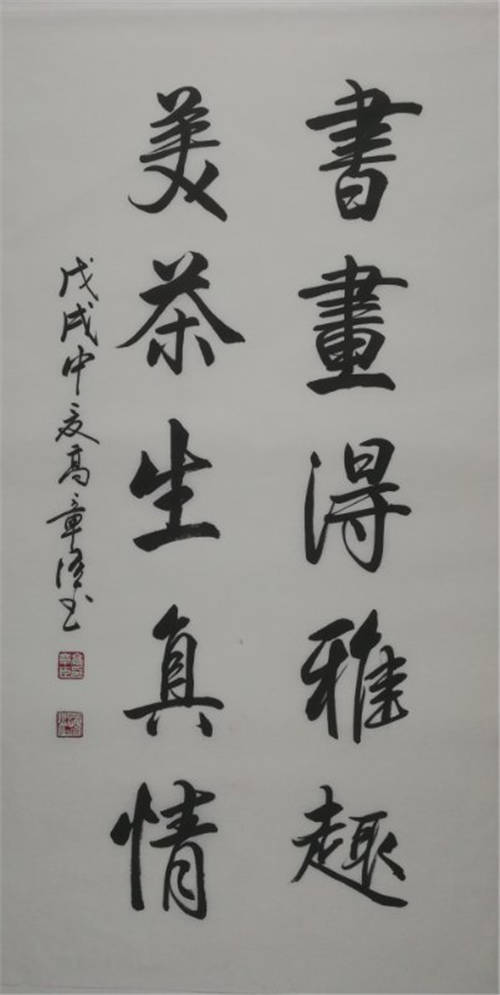 書畫得雅趣
美茶生真情
戊戌中夏高章